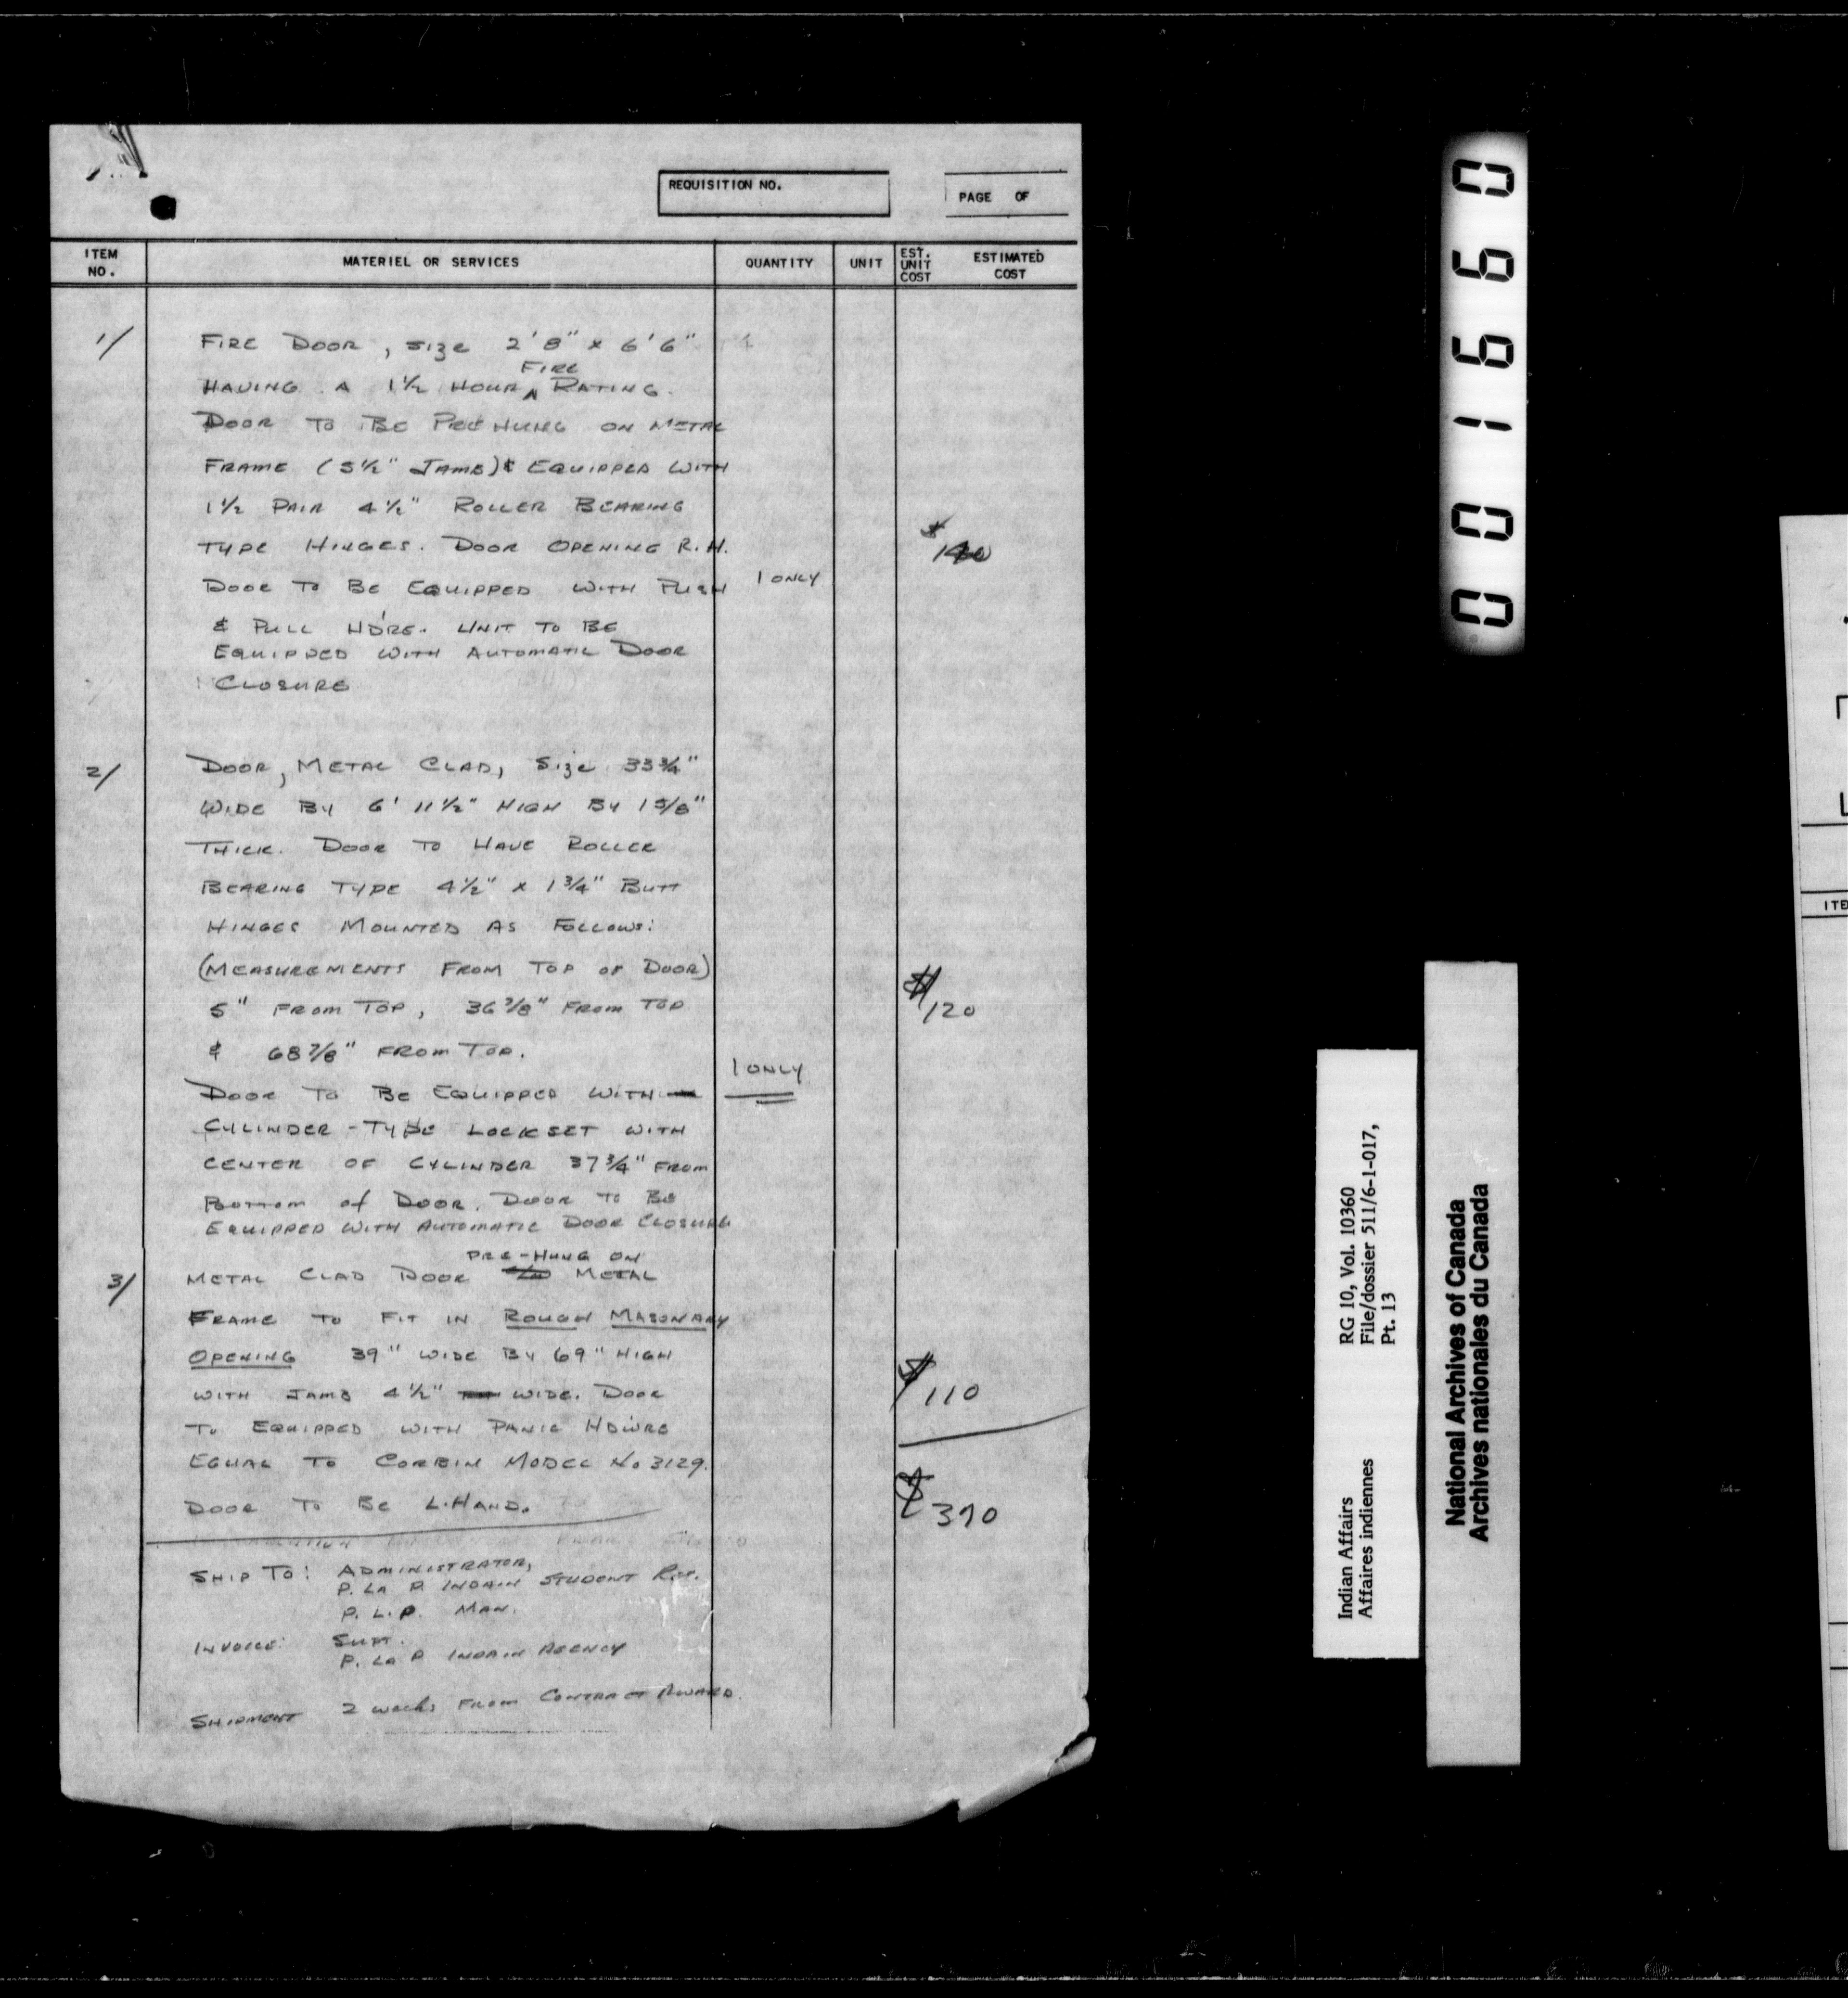 REQUISITION NO.
PAGE OF
ITEM NO. MATERIEL OR SERVICES QUANTITY UNIT EST. UNIT COST ESTIMATED COST
1/ FIRE DOOR, size 2'8" x 6'6"
FIRE
HAVING A 1½ HOUR ^ RATING.
DOOR TO BE PREHUNG ON METAL
FRAME (5½" JAMB) & EQUIPPED WITH
1½ PAIR 4½" ROLLER BEARING
TYPE HINGES. DOOR OPENING R.H.
$140
DOOR TO BE EQUIPPED WITH PUSH 1 ONLY
& PULL HD'RE. UNIT TO BE
EQUIPPED WITH AUTOMATIC DOOR
CLOSURE
2/ DOOR, METAL CLAD, Size 33¾"
WIDE BY 6' 11½" HIGH BY 1 5/8"
THICK. DOOR TO HAVE ROLLER
BEARING TYPE 4½" x 1¾" BUTT
HINGES MOUNTED AS FOLLOWS:
(MEASUREMENTS FROM TOP OF DOOR)
5" FROM TOP, 36 7/8" FROM TOP $120
& 68 7/8" FROM TOP.
1 ONLY
DOOR TO BE EQUIPPED WITH
CYLINDER-TYPE LOCKSET WITH
CENTER OF CYLINDER 37¾" FROM
BOTTOM of DOOR. DOOR TO BE
EQUIPPED WITH AUTOMATIC DOOR CLOSURE
PRE-HUNG ON
3/ METAL CLAD DOOR METAL
FRAME TO FIT IN ROUGH MASONARY
OPENING 39" WIDE BY 69" HIGH
WITH JAMB 4½" WIDE. DOOR $110
TO EQUIPPED WITH PANIC HDWRE
EQUAL TO CORBIN MODEL No 3129.
DOOR TO BE L.HAND. $370
SHIP TO: ADMINISTRATOR,
P. LA P. INDAIN STUDENT RES.
P. L. P. MAN.
INVOICE: SUPT.
P. LA P INDAIN AGENCY
SHIPMENT 2 weeks FROM CONTRACT AWARD.
001660
RG 10, Vol. 10360
File/dossier 511/6-1-017,
Pt. 13
Indian Affairs
Affaires indiennes
National Archives of Canada
Archives nationales du Canada
ITE